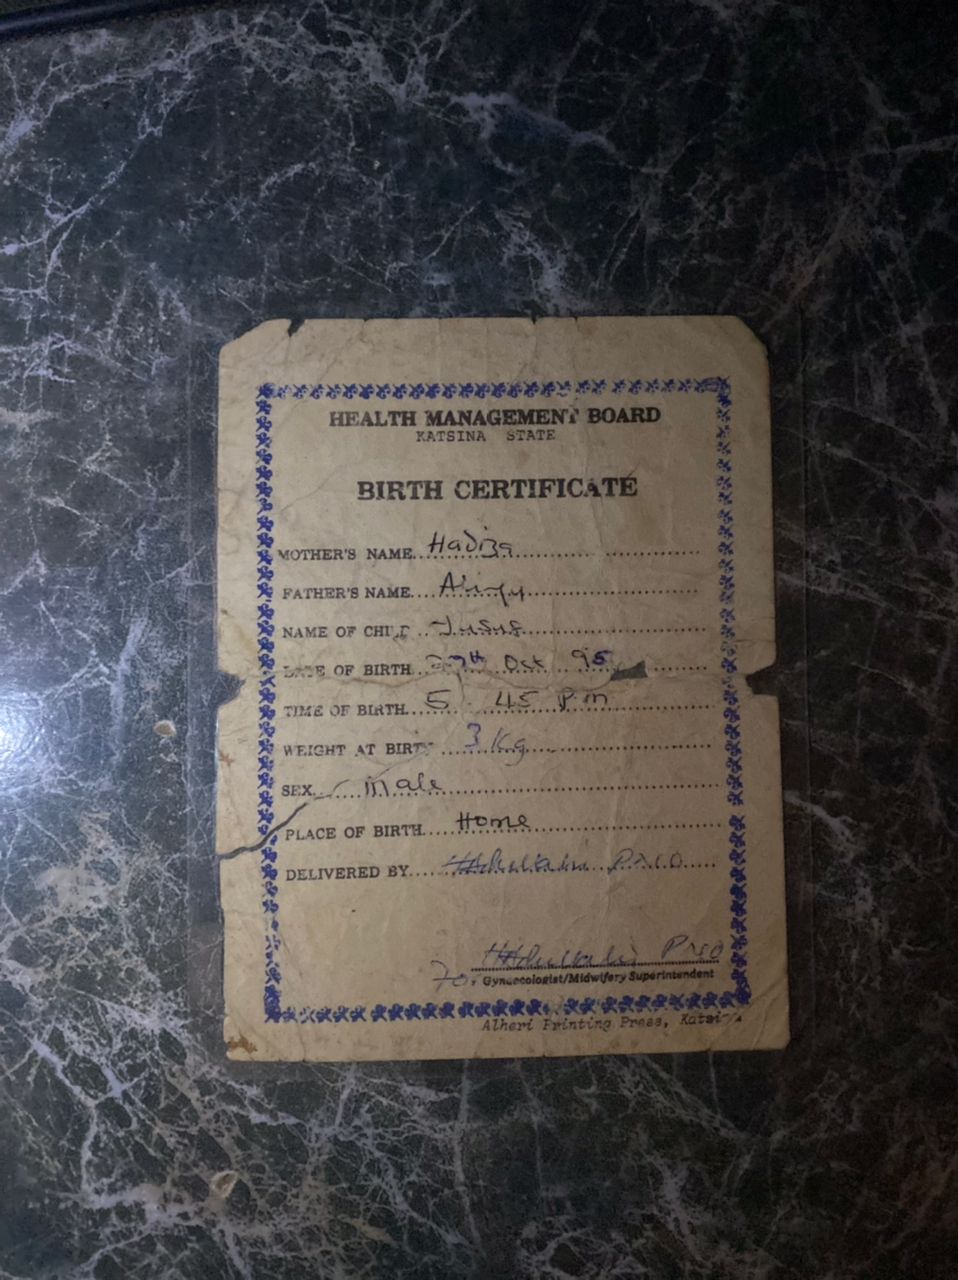 HEALTH MANAGEMENT BOARD
KATSINA STATE
BIRTH CERTIFICATE
MOTHER'S NAME Hadiza
FATHER'S NAME
NAME OF CHILD
DATE OF BIRTH 27th Oct 95
TIME OF BIRTH 5.45 pm
WEIGHT AT BIRTH 3 Kg
SEX Male
PLACE OF BIRTH Home
DELIVERED BY
For
Gynaecologist/Midwifery Superintendent
Alheri Printing Press, Katsina